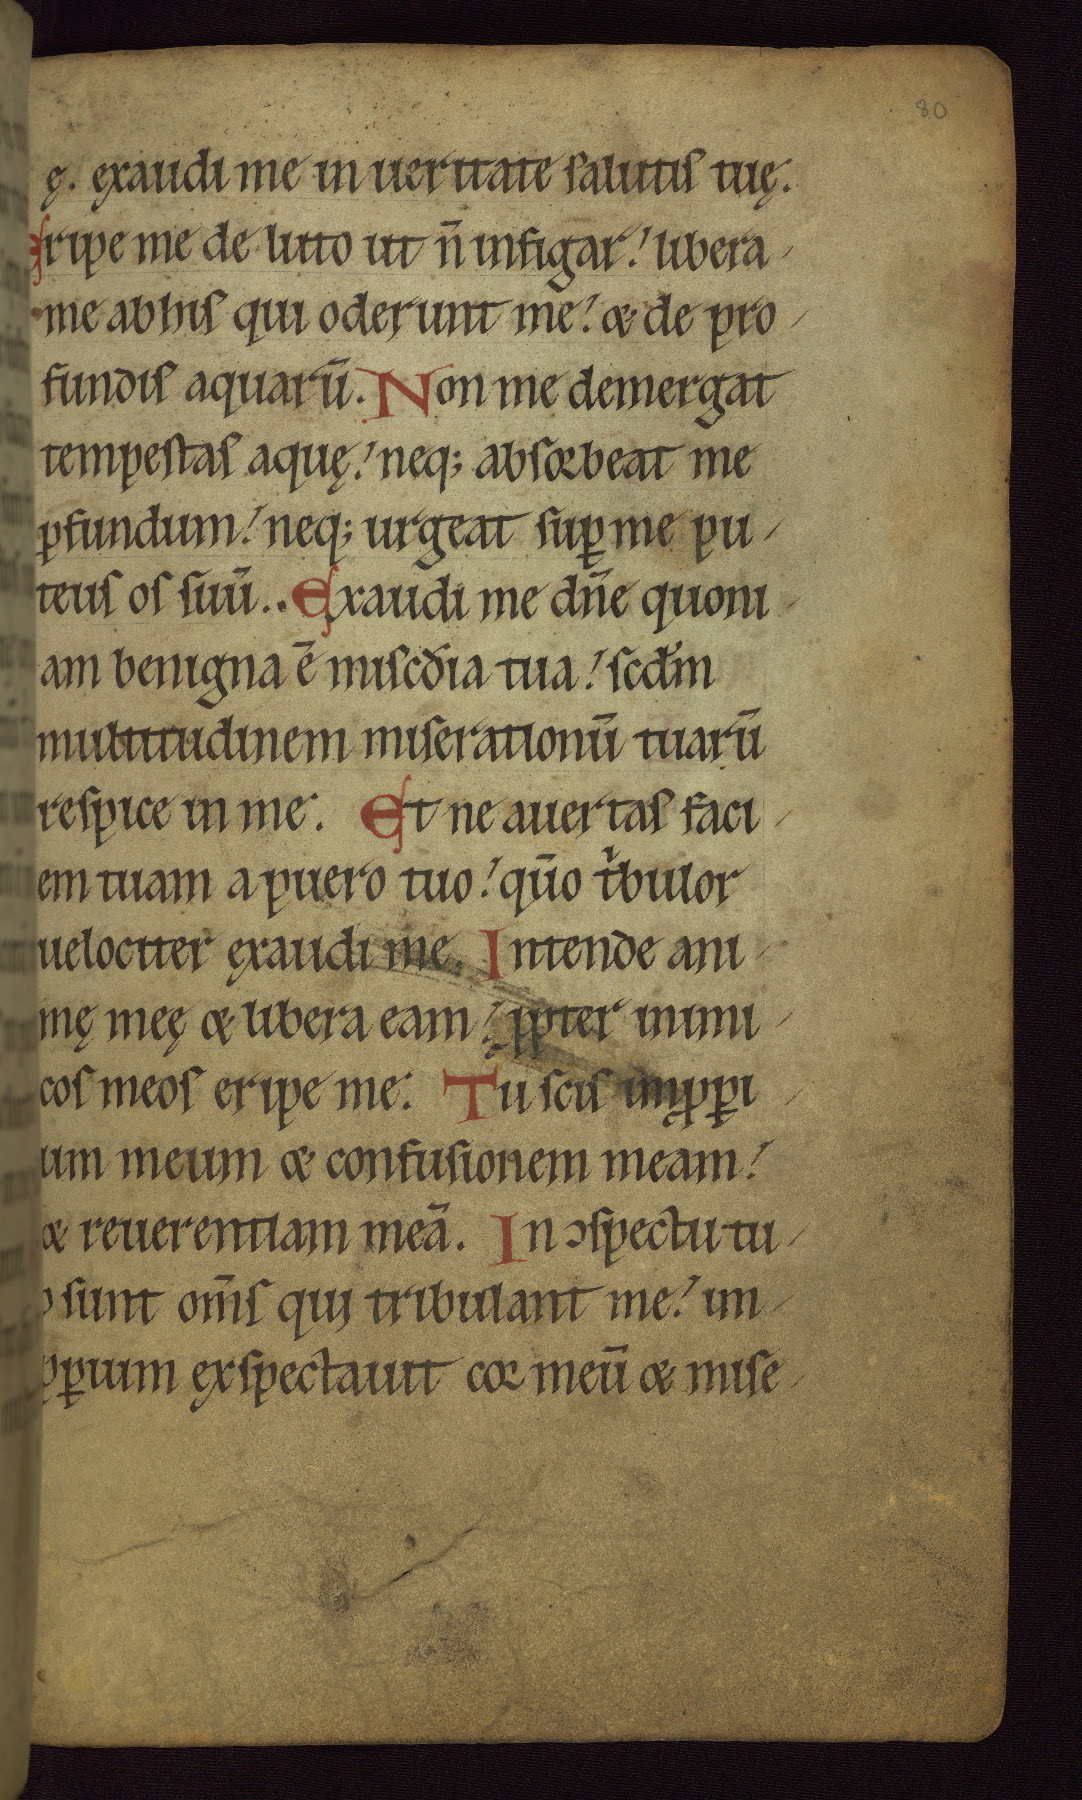 80
ę. ęxaudi me in ueritate salutis tuę.
Eripe me de luto ut n̄ infigar! libera
me ab his qui oderunt me! & de pro
fundis aquarū. Non me demergat
tempestas aquę! neq; absorbeat me
ꝓfundum! neq; urgeat suꝑ me pu
teus os suū.. Exaudi me dn̄e quoni
am benigna ē misc̄dia tua! scd̄m
multitudinem miserationū tuarū
respice in me. Et ne auertas faci
em tuam a puero tuo! qūo tͥbulor
uelociter ęxaudi me. Intende ani
mę meę & libera eam! ꝓpter inimi
cos meos eripe me. Tu scis imꝓꝑi
um meum & confusionem meam!
& reuerentiam meā. In ɔspectu tu
o sunt om̄s qui tribulant me! im
ꝓꝑium ęxspectauit cor meū & mise